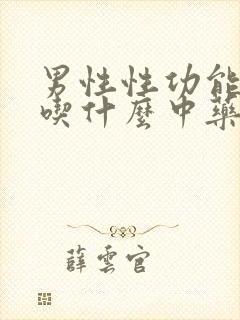 男性性功能
喫什麼中藥
薛雲官